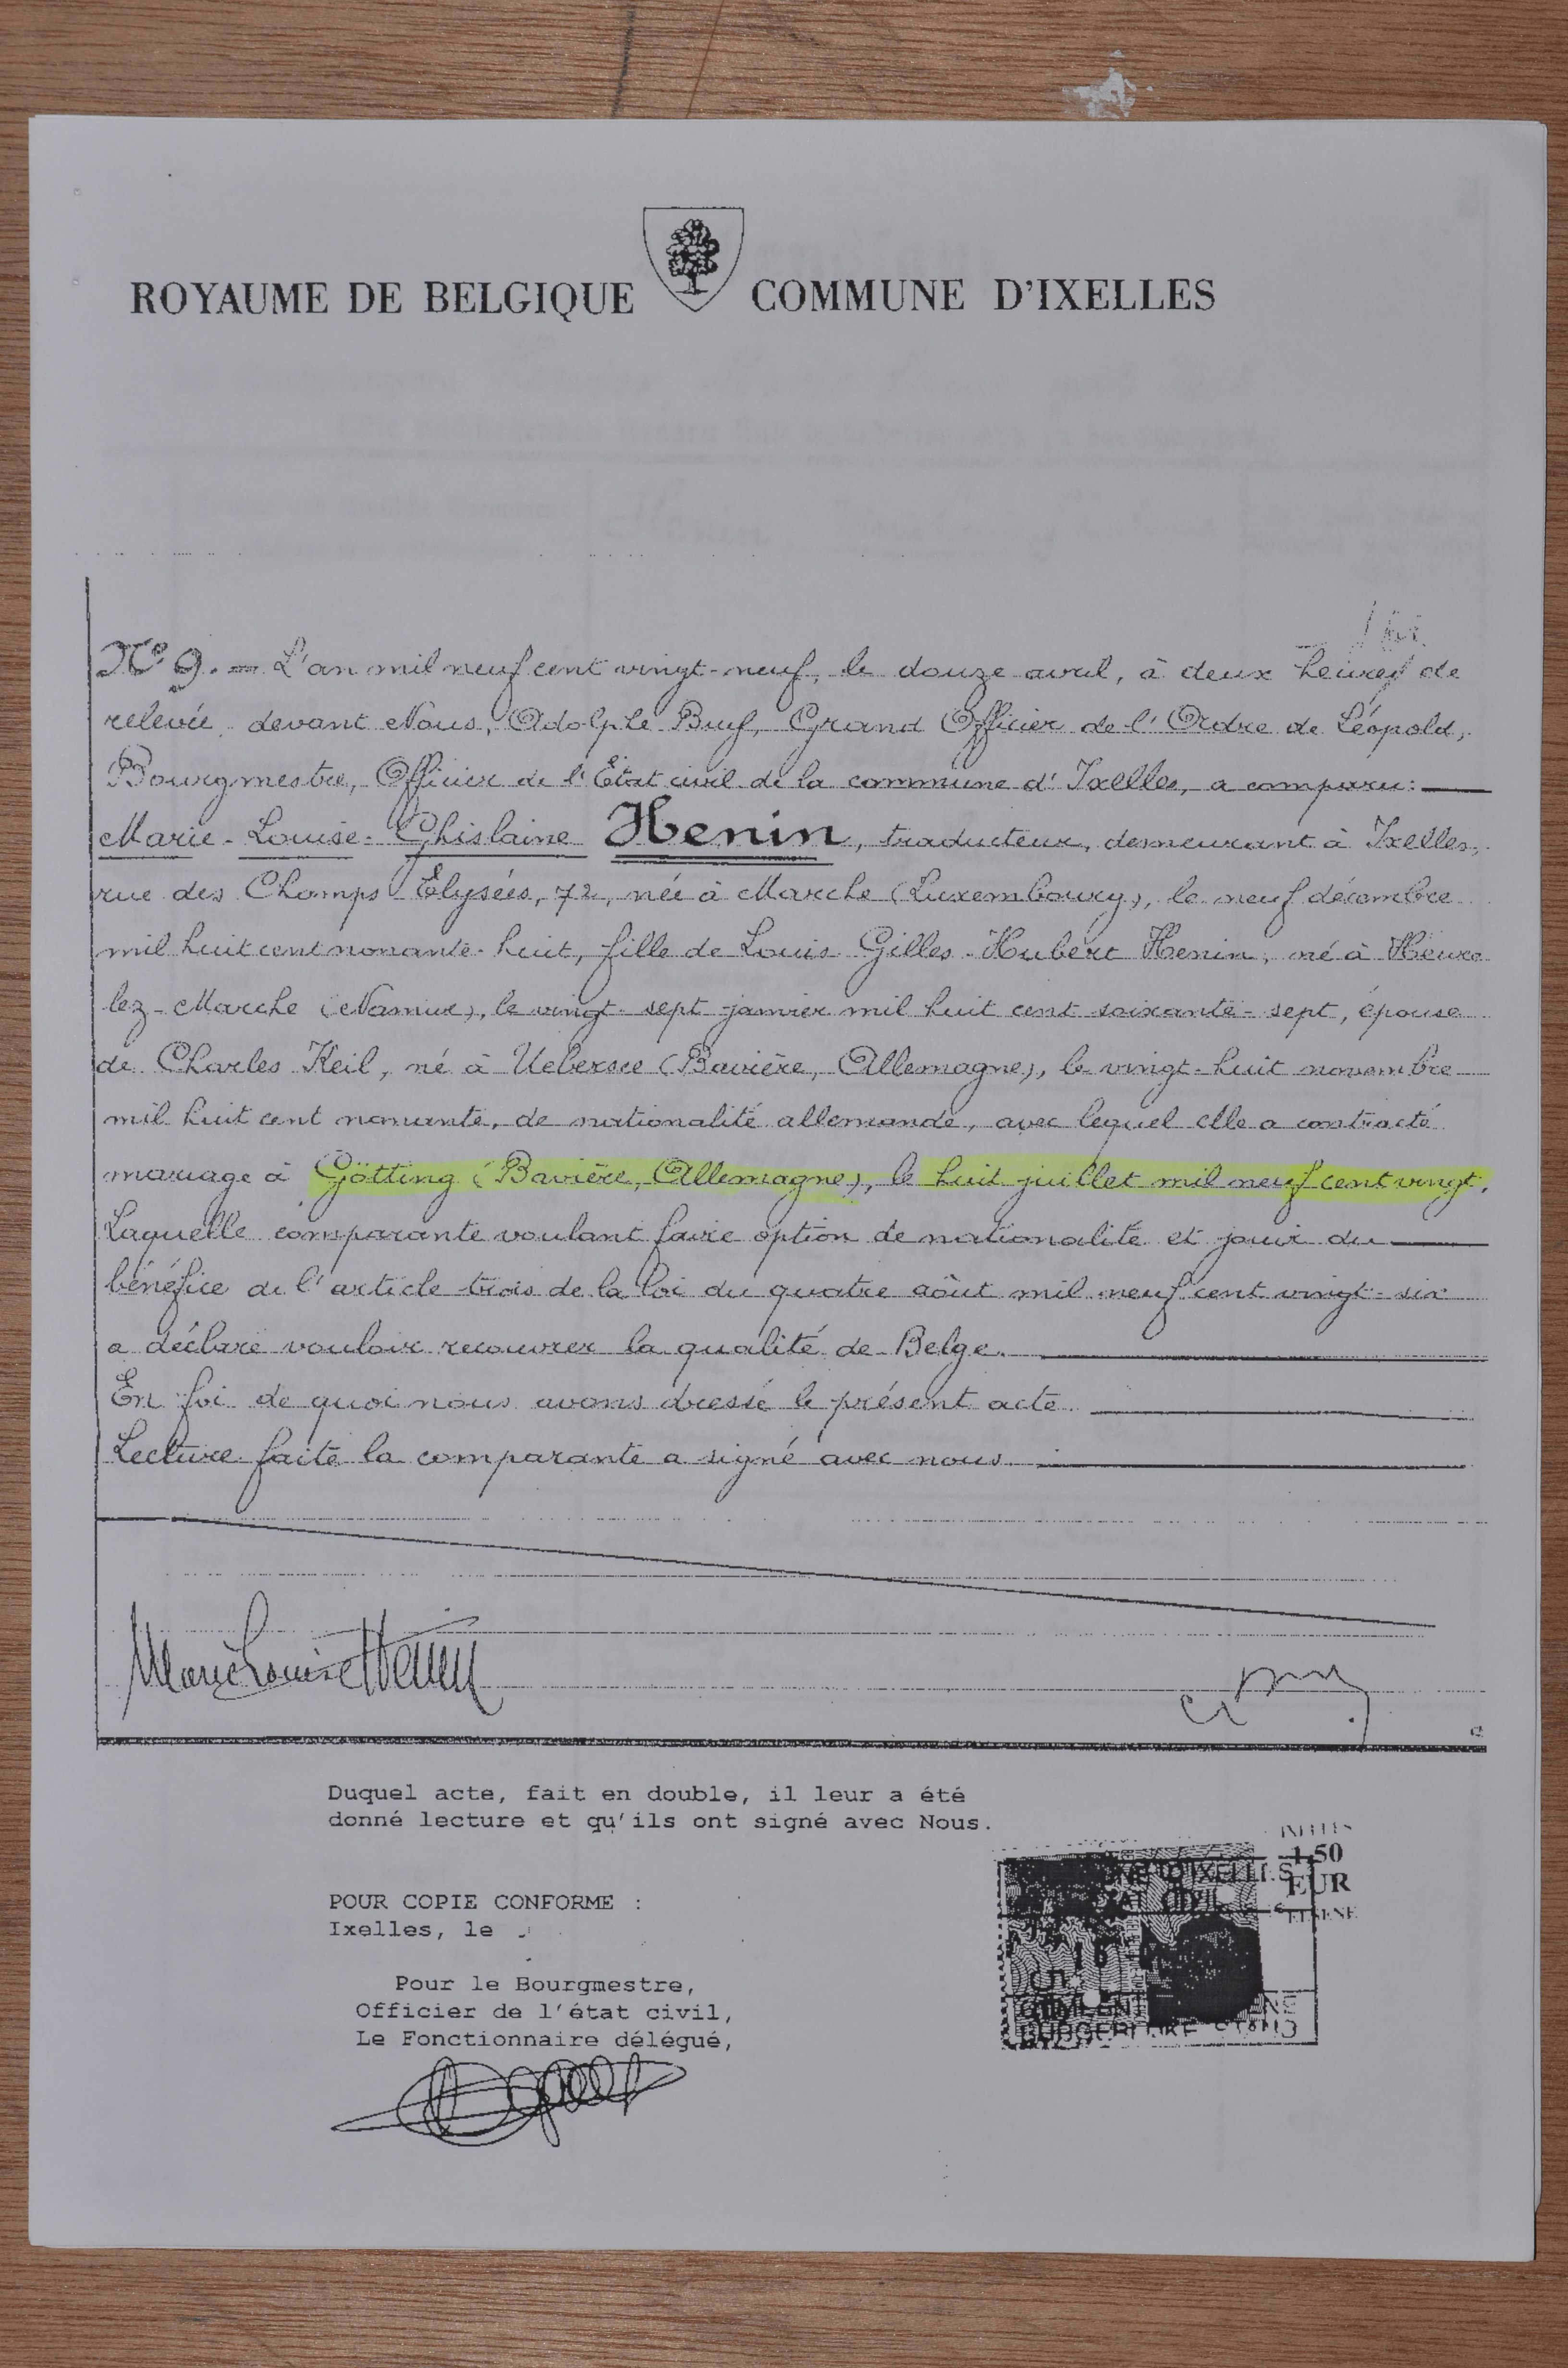 ROYAUME DE BELGIQUE COMMUNE D'IXELLES
N° 9. = L'an mil neuf cent vingt-neuf, le douze avril, à deux heures de
relevée, devant Nous, Adolphe Buyl, Grand Officier de l'Ordre de Léopold,
Bourgmestre, Officier de l'Etat civil de la commune d'Ixelles, a comparu:
Marie-Louise-Ghislaine Henin, traducteur, demeurant à Ixelles,
rue des Champs Elysées, 72, née à Marche (Luxembourg), le neuf décembre
mil huit cent nonante-huit, fille de Louis-Gilles-Hubert Henin, né à Heure
lez-Marche (Namur), le vingt-sept janvier mil huit cent soixante-sept, épouse
de Charles Keil, né à Uebersee (Bavière, Allemagne), le vingt-huit novembre
mil huit cent nonante, de nationalité allemande, avec lequel elle a contracté
mariage à Götting (Bavière, Allemagne), le huit juillet mil neuf cent vingt.
Laquelle comparante voulant faire option de nationalité et jouir du
bénéfice de l'article trois de la loi du quatre août mil neuf cent vingt-six
a déclaré vouloir recouvrer la qualité de Belge.
En foi de quoi nous avons dressé le présent acte.
Lecture faite la comparante a signé avec nous.
Marie Louise Henin
Duquel acte, fait en double, il leur a été
donné lecture et qu'ils ont signé avec Nous.
IXELLES
1,50
EUR
ELSENE
D'IXELLES
ETAT CIVIL
POUR COPIE CONFORME :
Ixelles, le
Pour le Bourgmestre,
Officier de l'état civil,
Le Fonctionnaire délégué,
BURGERLIJKE STAND